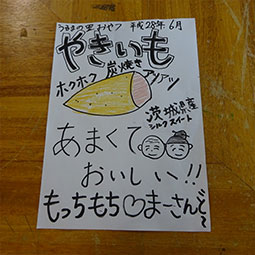 うるまの里 おやつ 平成28年 6月
やきいも
ホクホク 炭焼き アツアツ
茨城県産
シルクスイート
あまくて
おいしい!!
もっちもち♡まーさんどー